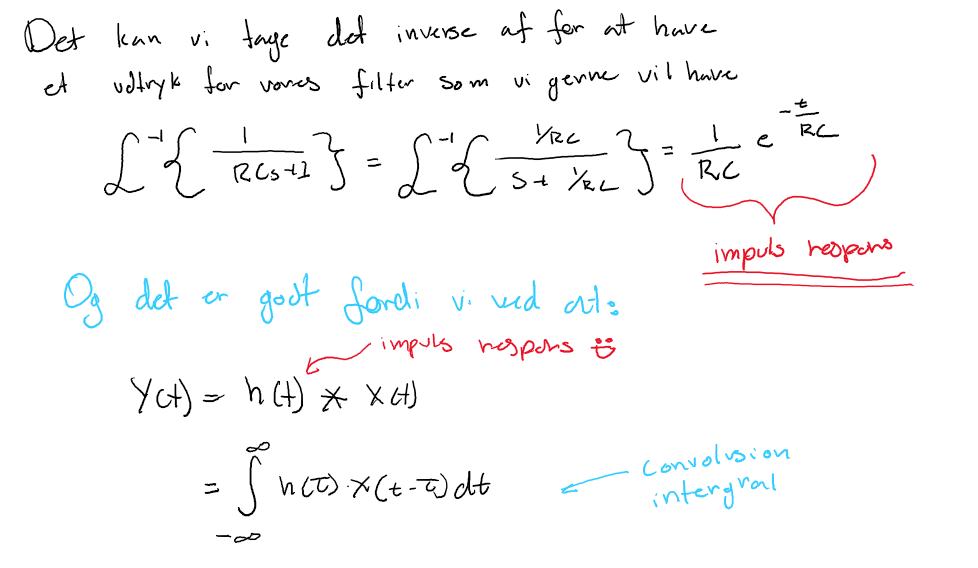 Det kan vi tage det inverse af for at have
et udtryk for vores filter som vi gerne vil have
ℒ⁻¹{ 1 / (RCs+1) } = ℒ⁻¹{ (1/RC) / (s + 1/RC) } = 1/RC e^(-t/RC)
impuls respons
Og det er godt fordi vi ved at:
impuls respons
Y(t) = h(t) * x(t)
= ∫_{-∞}^{∞} h(τ)·x(t-τ)dt
convolusion
intergral